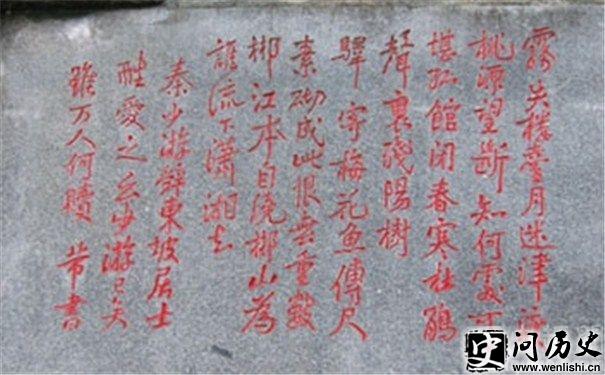 霧失樓臺月迷津渡
桃源望斷知何處可
堪孤館閉春寒杜鵑
聲裏殘陽樹
驛寄梅花魚傳尺
素砌成此恨無重數
郴江本自繞郴山為
誰流下瀟湘去
秦少游辭東坡居士
酷愛之云少游已矣
雖万人何贖 芾書
史 问历史
www.wenlishi.cn